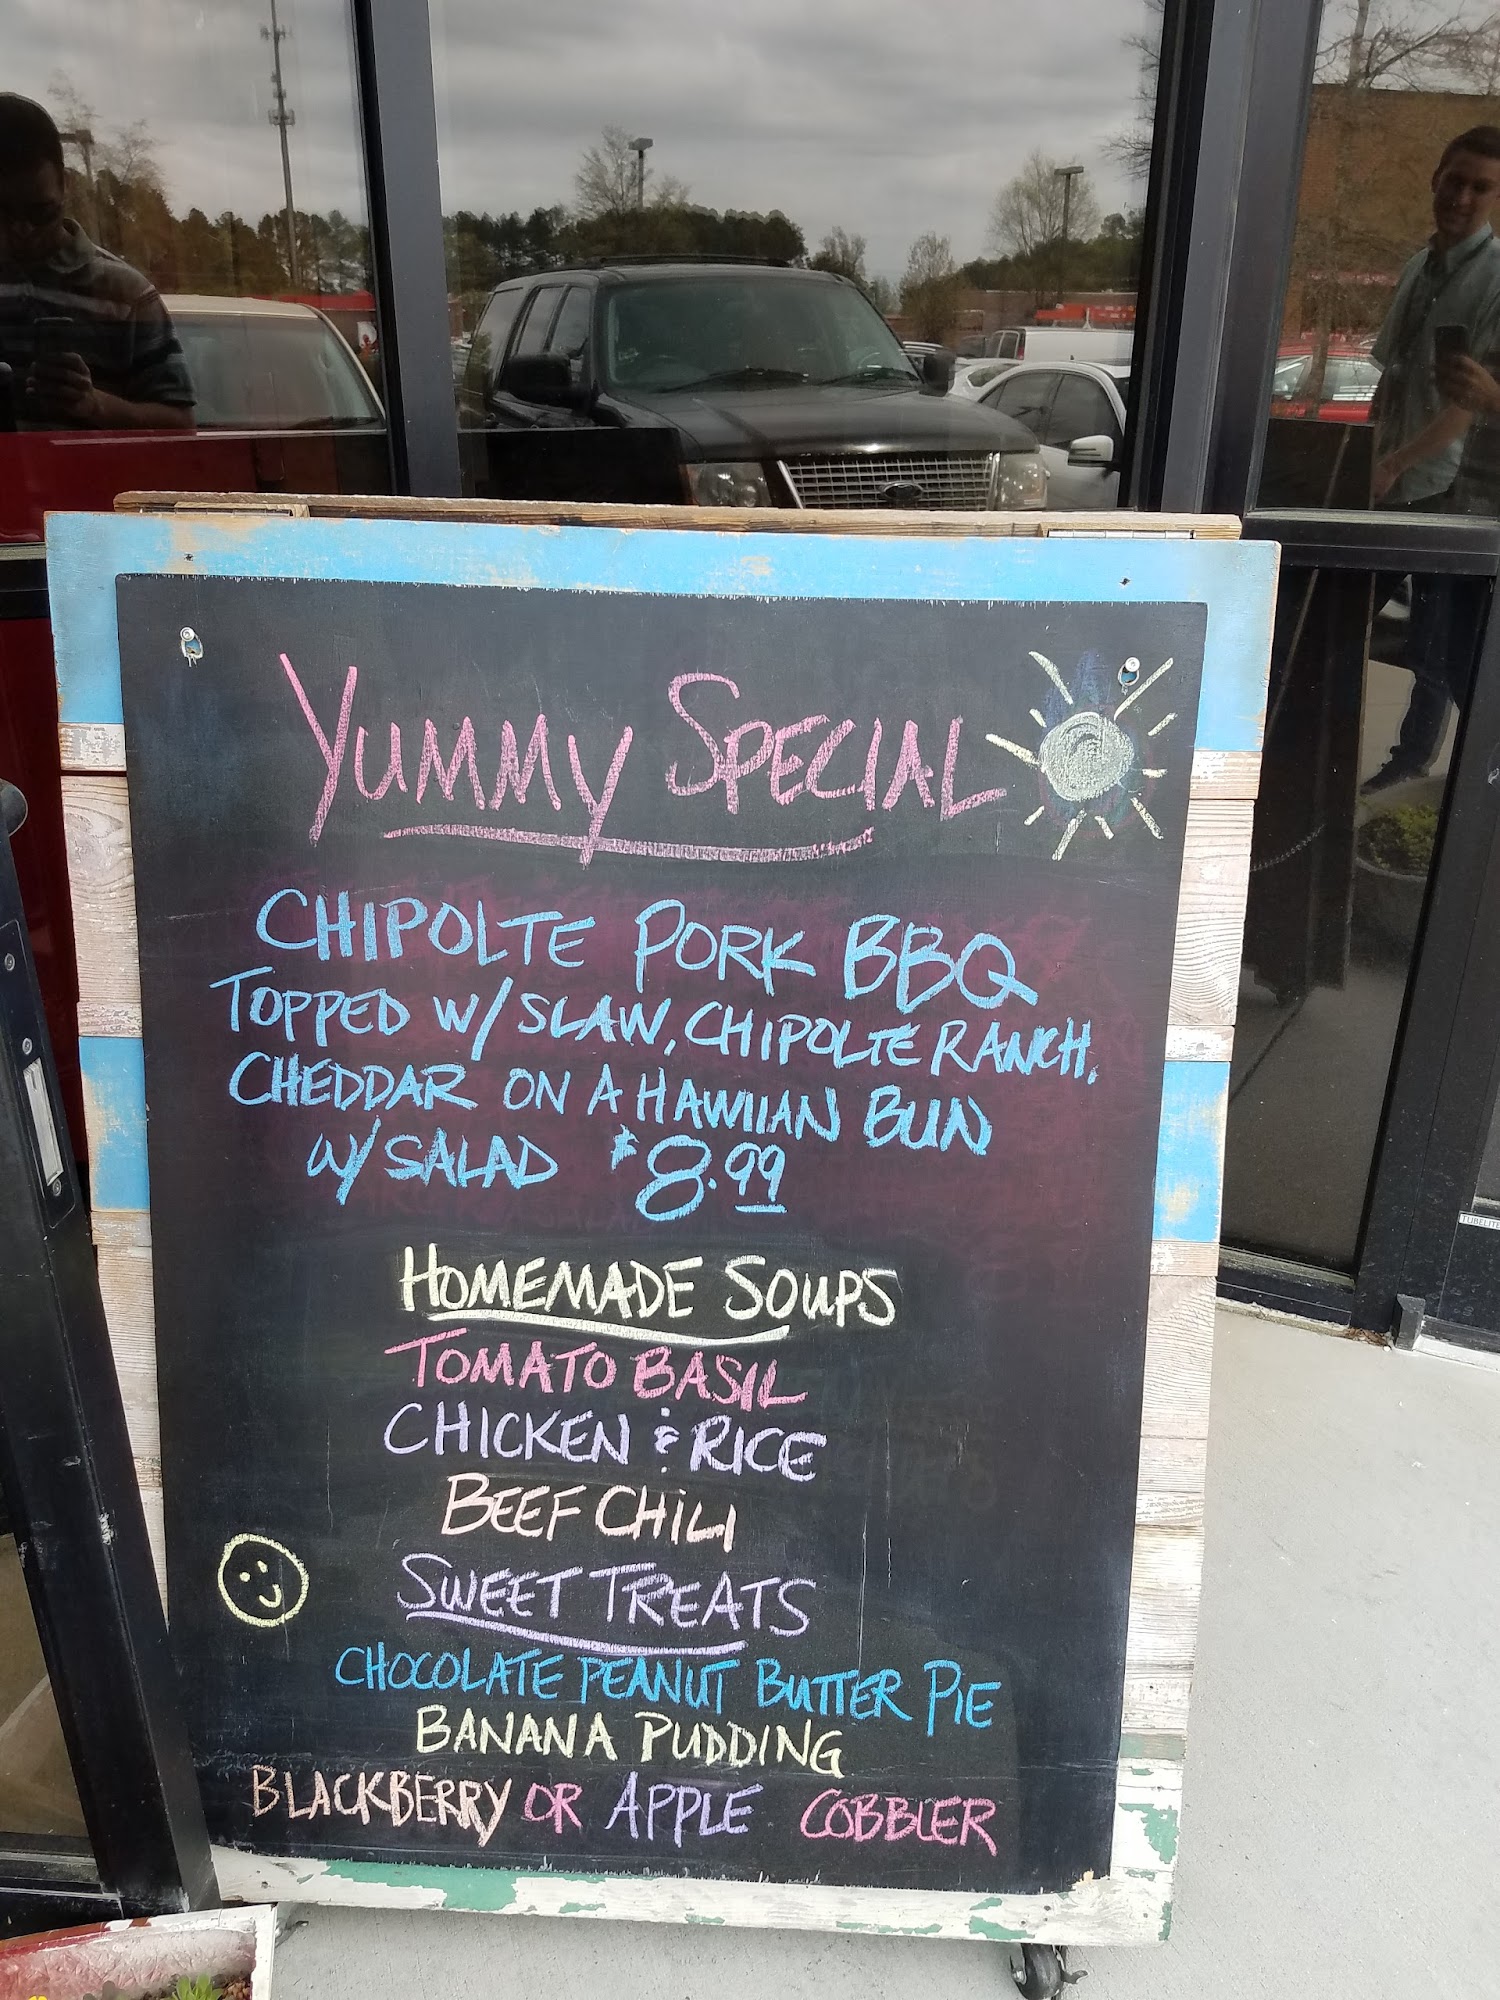 YUMMY SPECIAL
CHIPOLTE PORK BBQ
TOPPED W/ SLAW, CHIPOLTE RANCH,
CHEDDAR ON A HAWIIAN BUN
W/ SALAD $8.99
HOMEMADE SOUPS
TOMATO BASIL
CHICKEN & RICE
BEEF CHILI
SWEET TREATS
CHOCOLATE PEANUT BUTTER PIE
BANANA PUDDING
BLACKBERRY OR APPLE COBBLER
TUBELITE